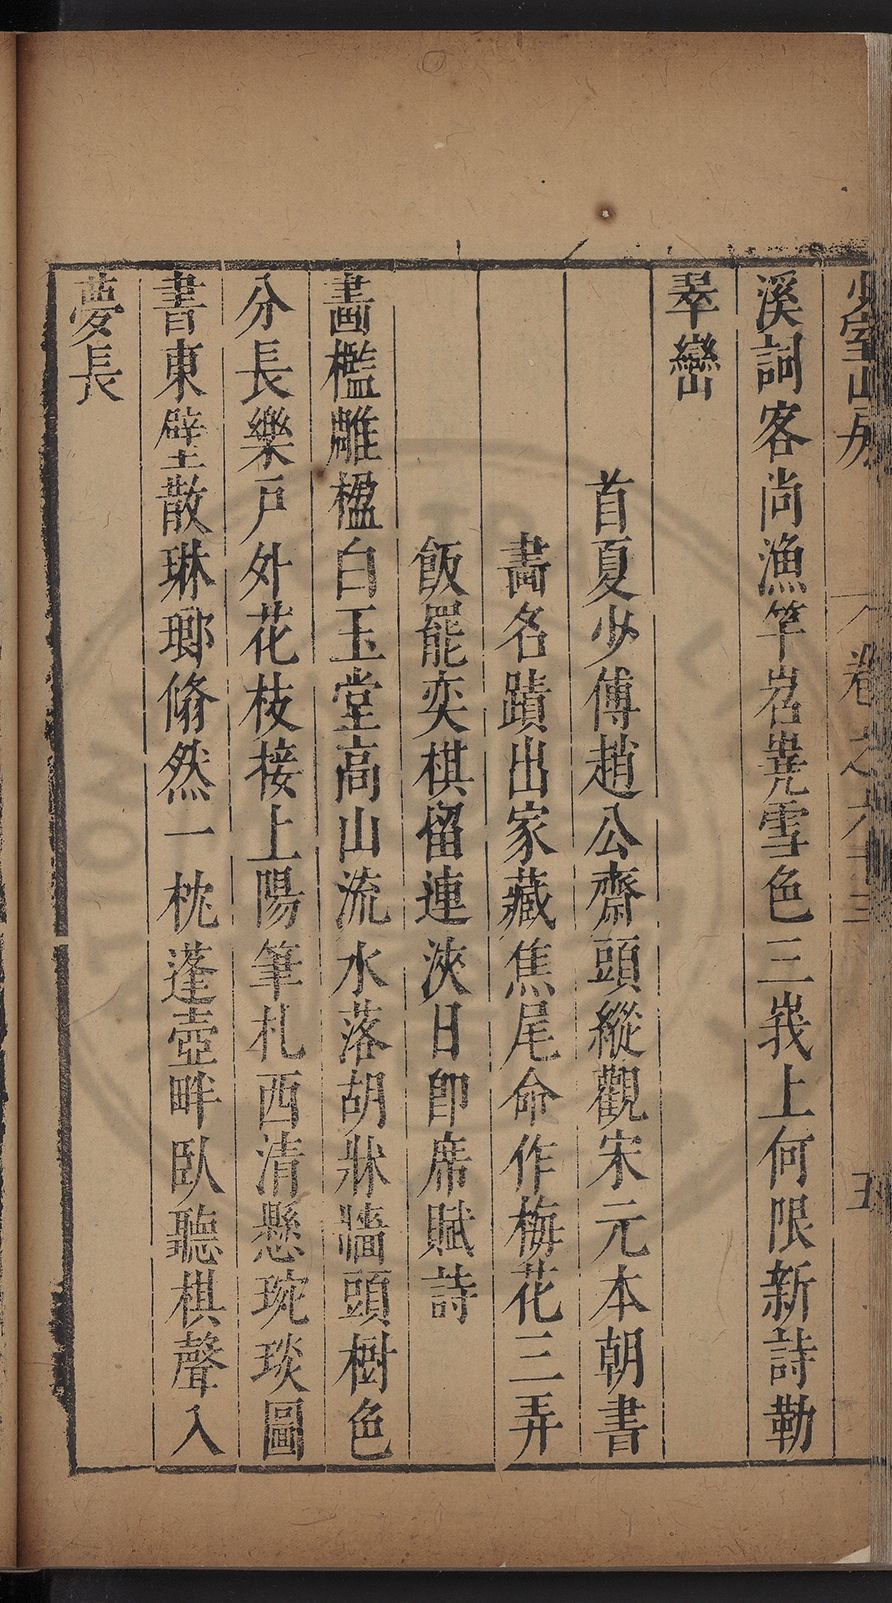 少室山房 卷之六十三 五
溪詞客尚漁竿岧嶤雪色三峩上何限新詩勒
翠巒
首夏少傅趙公齋頭縱觀宋元本朝書
畵名蹟出家藏焦尾命作梅花三弄
飯罷奕棋留連浹日卽席賦詩
畵檻雕楹白玉堂高山流水落胡牀牆頭樹色
分長樂戸外花枝接上陽筆札西清懸琬琰圖
書東壁散琳瑯翛然一枕蓬壺畔臥聽棋聲入
夢長